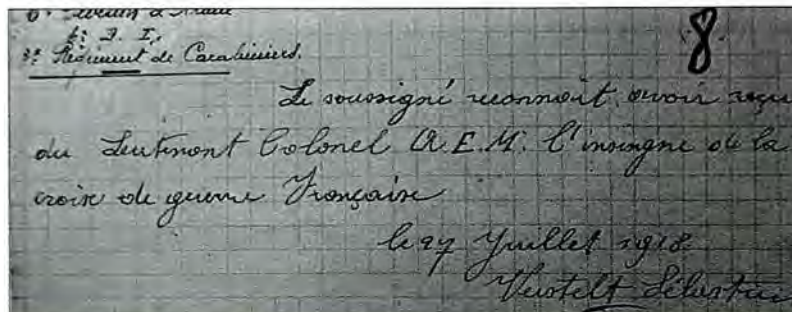 8
6. D. I.
3e Régiment de Carabiniers.
Le soussigné reconnait avoir reçu
du Leutenant Colonel A.E.M. l'insingne de la
croix de guerre Française
le 27 Juillet 1918
Célestin